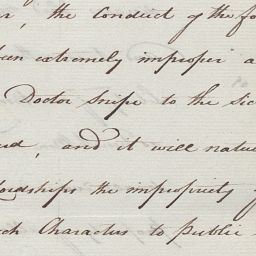 , the Conduct of the fo
een extremely improper a
Doctor Snipe to the Sic
ed, and it will natu
ordships the impropriety
ch Characters to Public